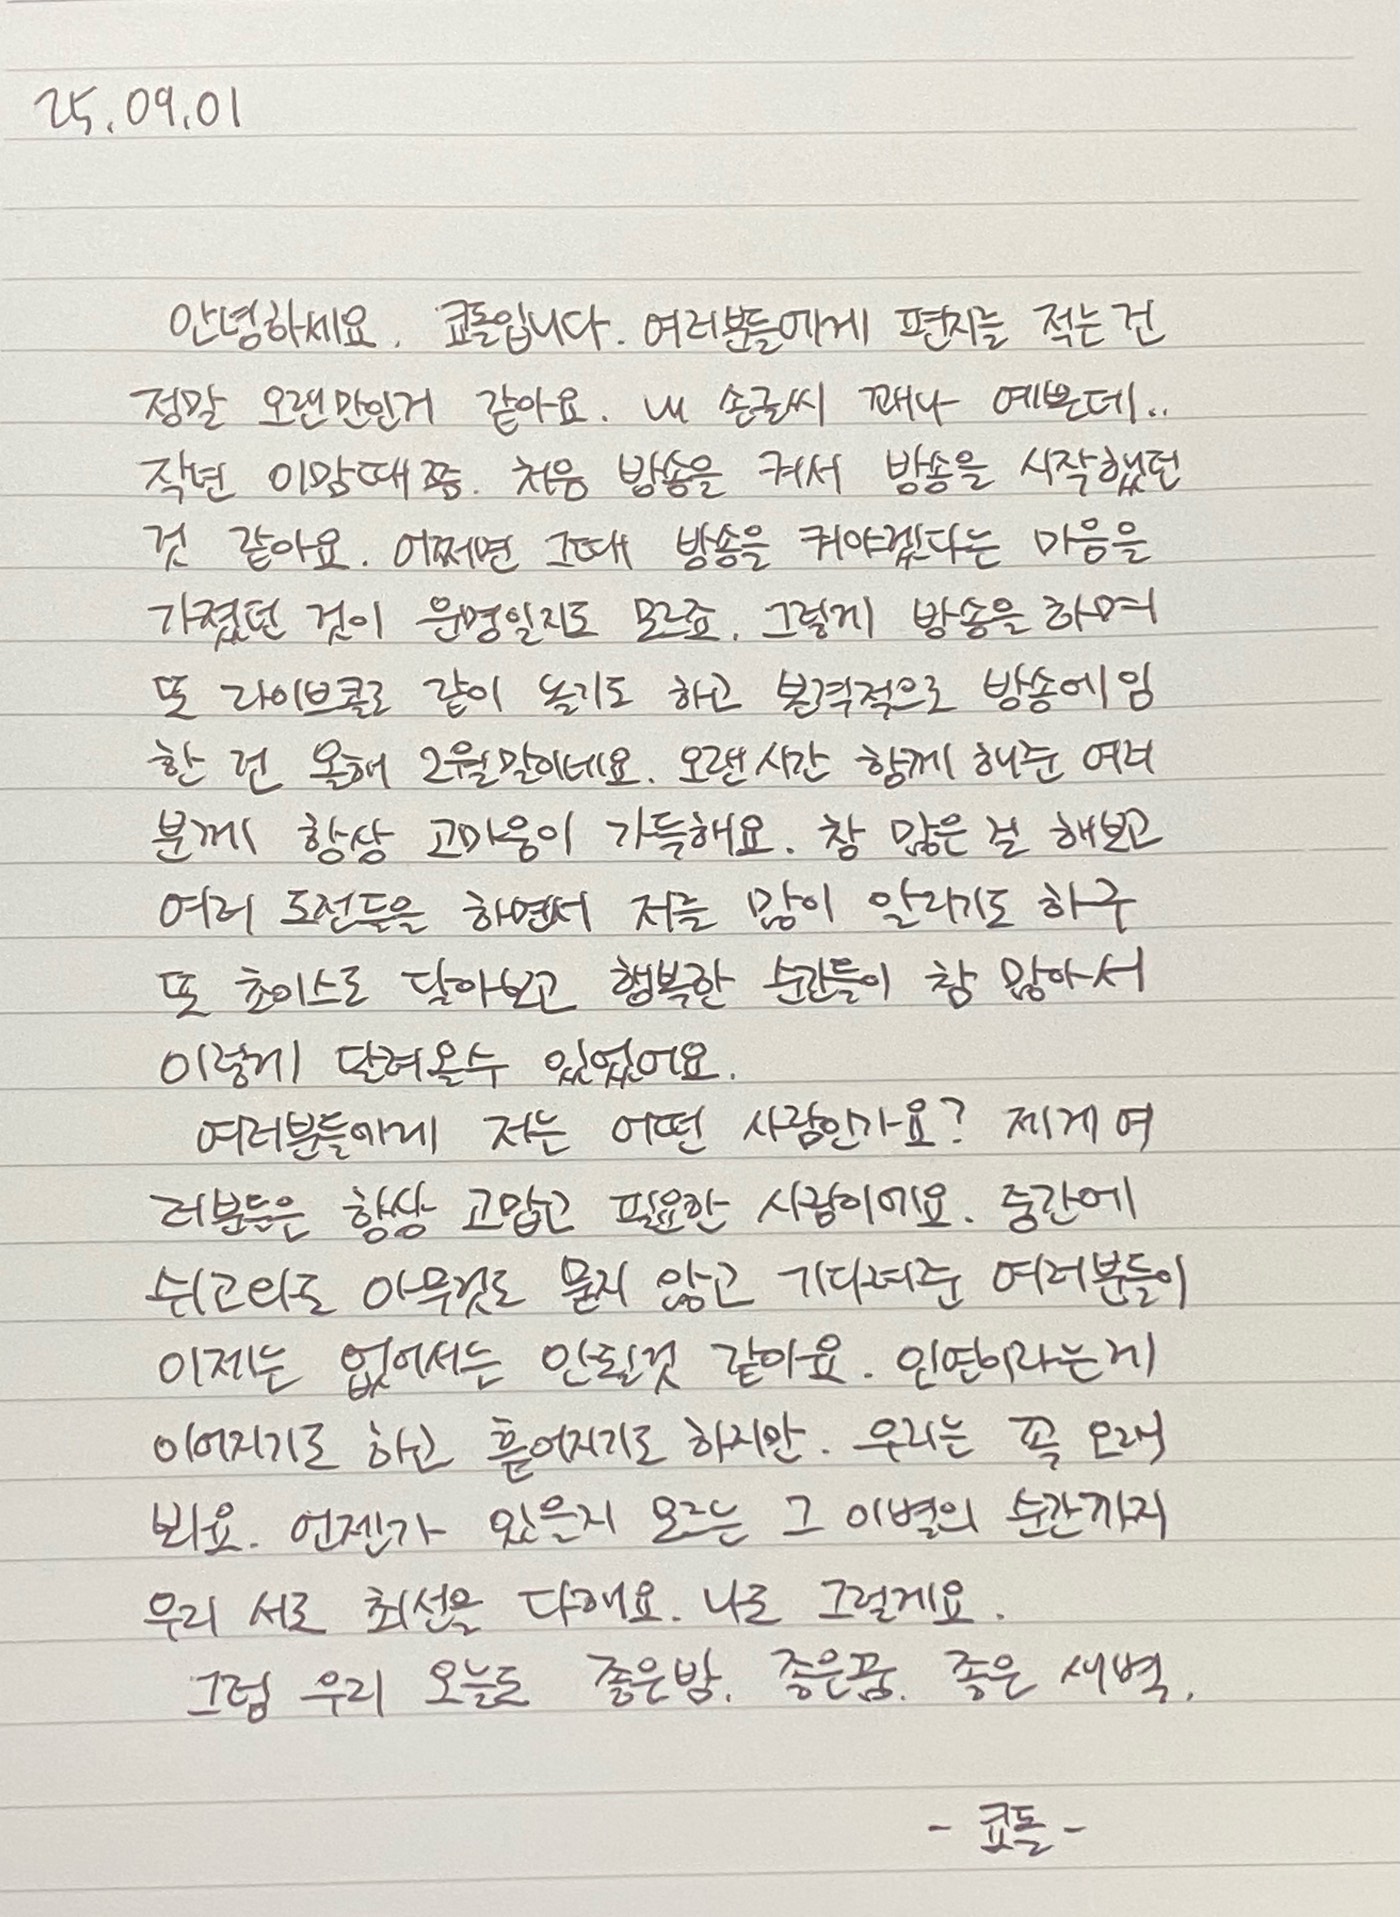 25.09.01
안녕하세요. 쿄돌입니다. 여러분들에게 편지를 적는건
정말 오랜만인거 같아요. 내 손글씨 꽤나 예쁜데..
작년 이맘때쯤. 처음 방송을 켜서 방송을 시작했던
것 같아요. 어쩌면 그때 방송을 켜야겠다는 마음을
가졌던 것이 운명일지도 모르죠. 그렇게 방송을 하며
또 라이브콜로 같이 놀기도 하고 본격적으로 방송에 임
한 건 올해 2월말이네요. 오랜시간 함께 해준 여러
분께 항상 고마움이 가득해요. 참 많은 걸 해보고
여러 도전들을 하면서 저를 많이 알리기도 하구
또 초이스도 달아보고 행복한 순간들이 참 많아서
이렇게 달려올수 있었어요.
여러분들에게 저는 어떤 사람인가요? 제게 여
러분들은 항상 고맙고 필요한 사람이에요. 중간에
쉬고와도 아무것도 묻지 않고 기다려준 여러분들이
이제는 없어서는 안될것 같아요. 인연이라는게
이어지기도 하고 흩어지기도 하지만. 우리는 꼭 오래
봐요. 언젠가 있을지 모르는 그 이별의 순간까지
우리 서로 최선을 다해요. 나도 그럴게요.
그럼 우리 오늘도 좋은밤. 좋은꿈. 좋은 새벽.
- 쿄돌 -